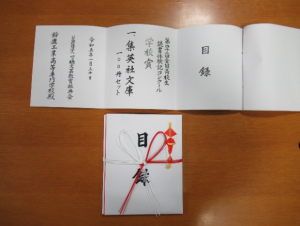 目録
第四十二回全国高校生
読書体験記コンクール
学校賞
一、集英社文庫
一〇〇冊セット
令和五年一月二十日
公益財団法人 一ツ橋文芸教育振興会
鈴鹿工業高等専門学校殿
目録